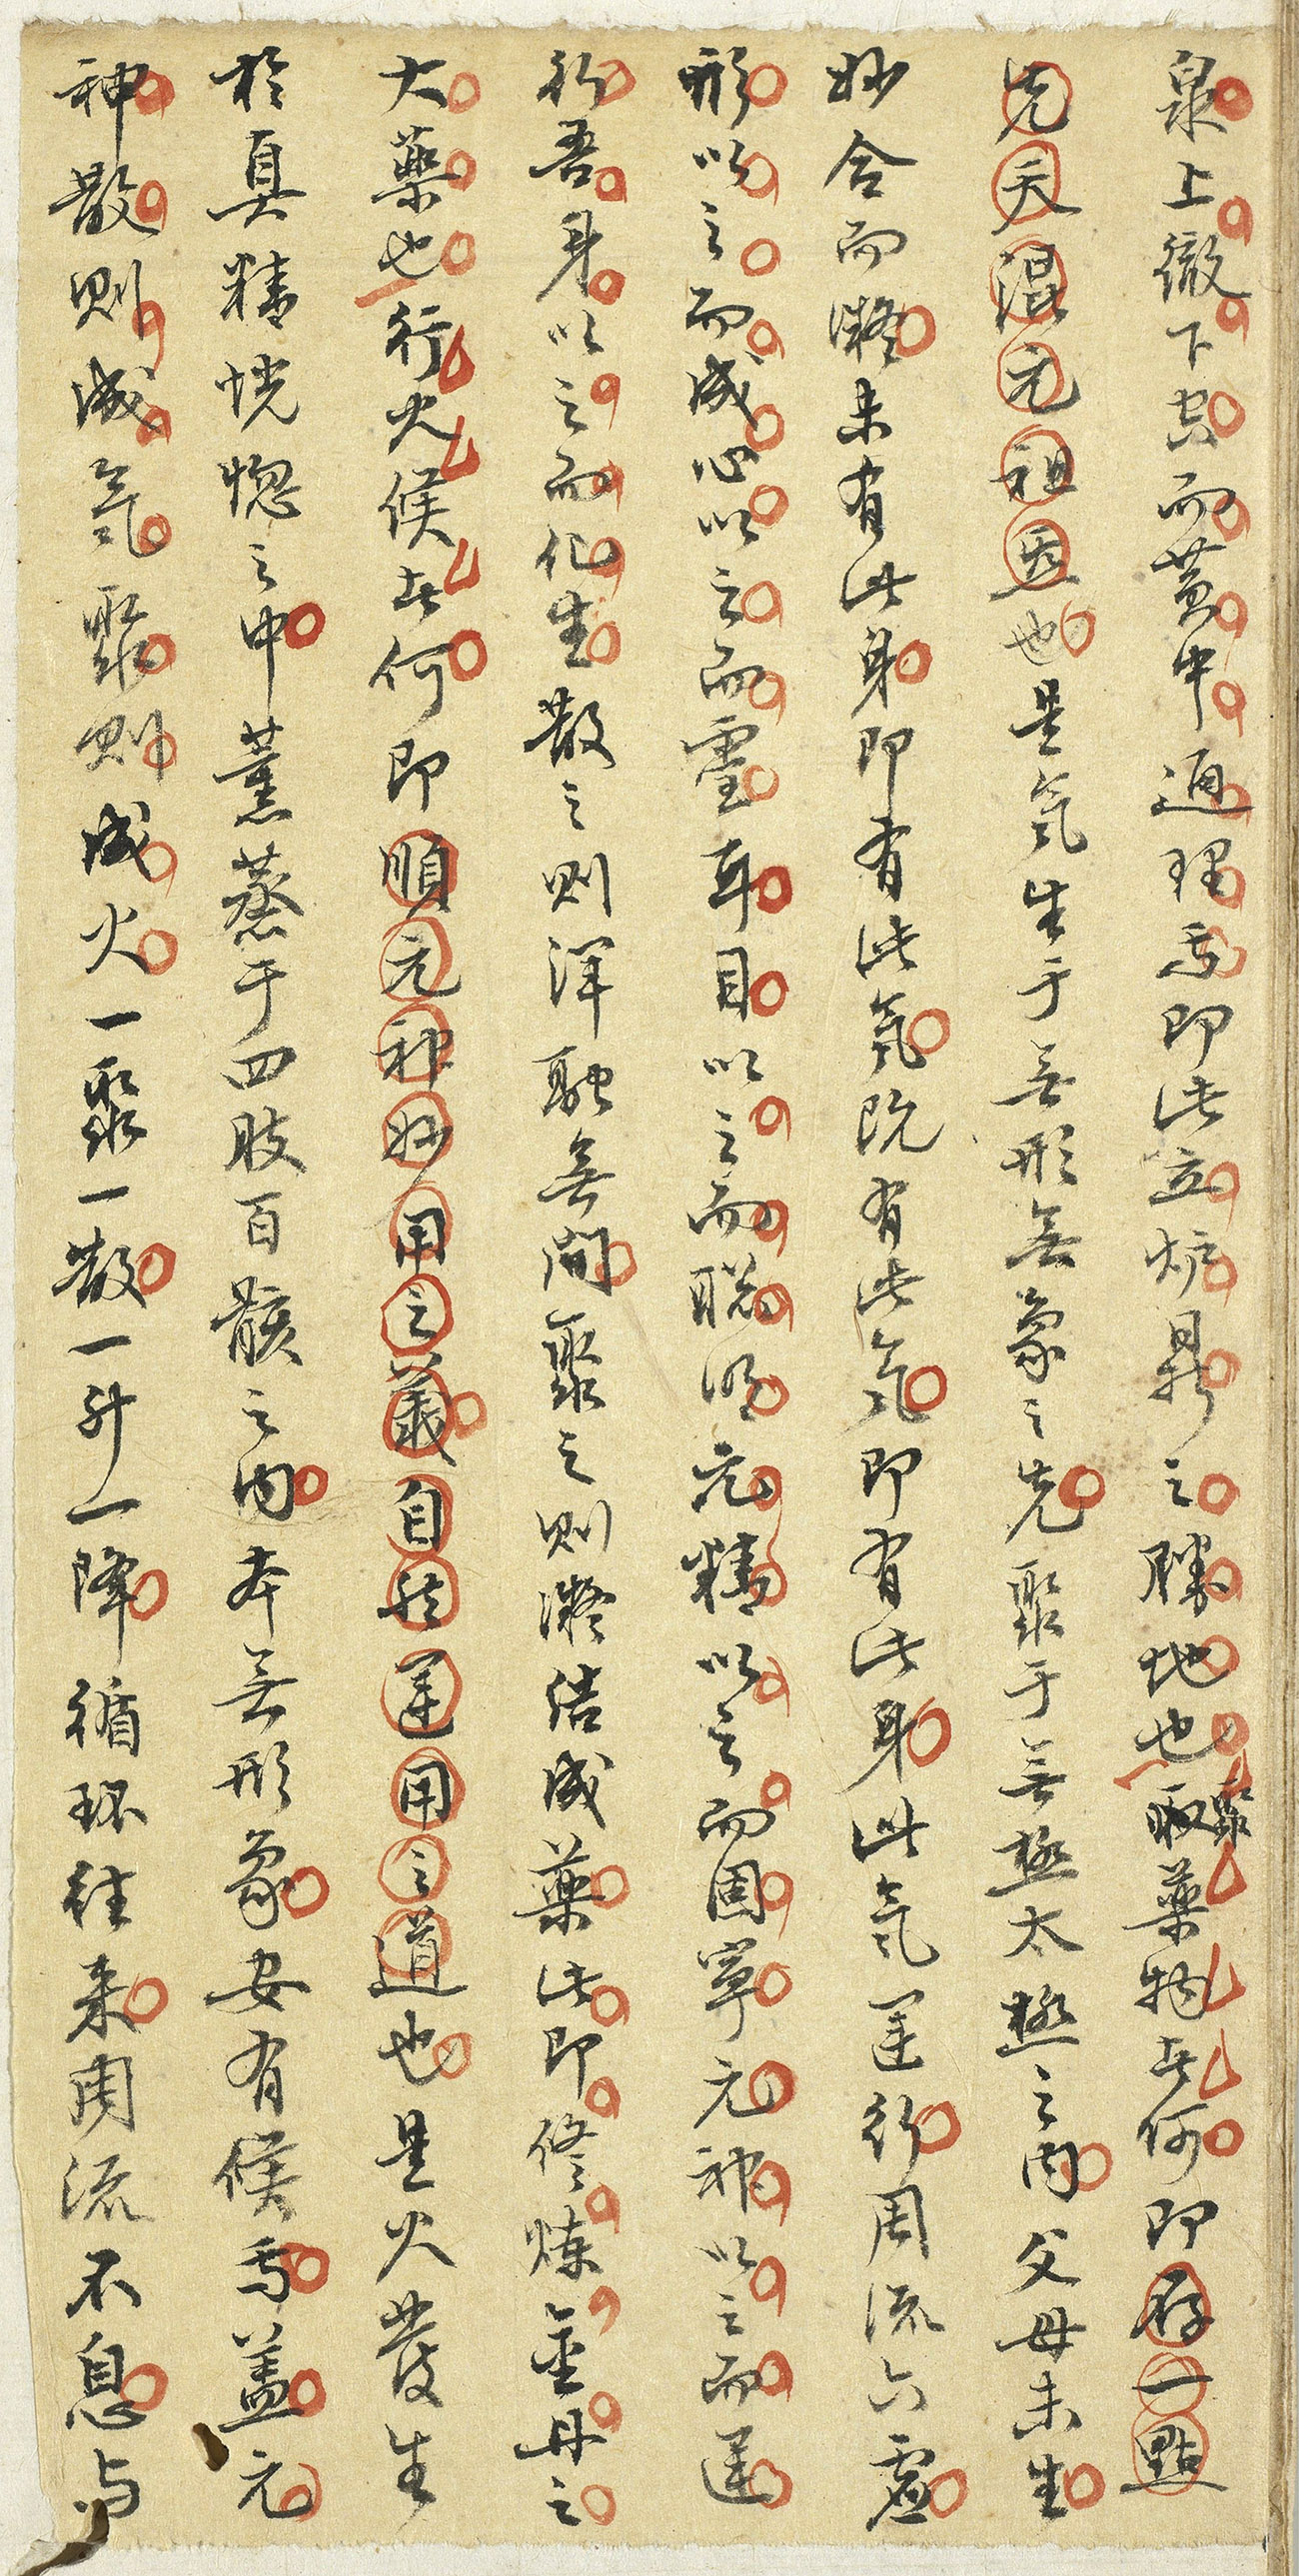 泉上徹下空而黃中通理焉即此立炉鼎之勝地也取聚藥物者何即存一點
先天混元祖炁也是氣生于無形無象之先聚于無極太極之內父母未生
妙合而凝未有此身即有此氣既有此氣即有此身此氣運行周流六虛
形以之而成心以之而靈耳目以之而聰明元精以之而固寧元神以之而運
行吾身以之而化生散之則渾融無間聚之則凝結成藥此即修煉金丹之
大藥也行火候者何即順元神妙用之義自然運用之道也是火發生
於真精恍惚之中薰蒸于四肢百骸之內本無形象安有候焉蓋元
神散則成氣聚則成火一聚一散一升一降循環往来周流不息与